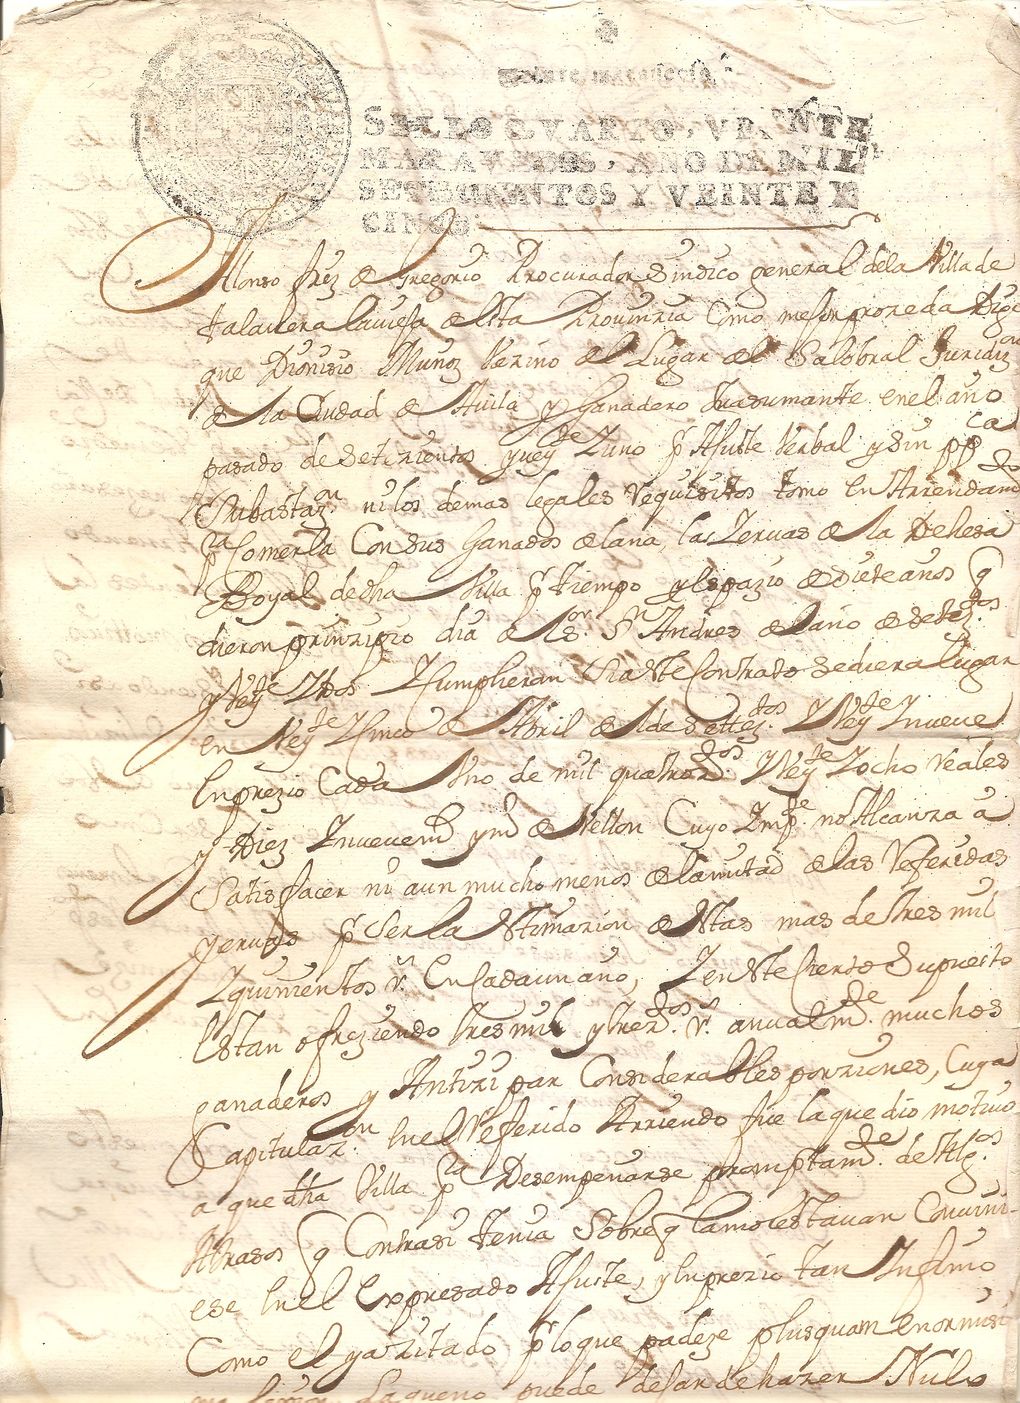 SELLO QVARTO, VEINTE
MARAVEDIS, AÑO DE MIL
SETECIENTOS Y VEINTE Y
CINCO.
Alonso frz de Gregorio Procurador Sindico general de la Villa de
talavera la vieja de esta Provinzia Como mejor prozeda Digo
que Dionisio Muñoz Vezino del Lugar del Salobral Juridizon
de la Ciudad de Avila y Ganadero trasumante en el año
pasado de setezientos y veyte Zuno pr Ajuste Verbal y sin ppca
Subastazon ni los demas legales requisitos tomo en Arrendamto
pra Comerla Con sus Ganados de lana, las Yervas de la Dehesa
Boyal de dha Villa pr tiempo y espazio de siete años q
dieron prinzipio dia de Sr. Sn Andres del año de setezdos
y veyte Zdos. Zcumplieran si a este Contrato se diera lugar
en veyte Zcinco de Abril del de settezdos. Zveyte Znueve
en prezio Cada Uno de mil quatrozdos. Zveyte Zocho reales
y Diez Znueve mrs ymo de Vellon Cuyo Zmpte no Alcanza a
Satisfacer ni aun mucho menos de la mitad de las referidas
yervas pr ser la estimazion de estas mas de tres mil
Zquinientos rs. en cada un año, Zen este zierto supuesto
estan ofreziendo tres mil y trezdos. rs. anualmte. muchos
ganaderos y Antizipar Considerables porziones, Cuya
Capitulazon en el referido Arriendo fue la que dio motivo
a que dha Villa pra Desempeñarse promptamte. de Algos.
Atrasos q Contra si tenia sobre q la molestavan Convini-
ese en el expresado Ajuste, y en prezio tan Infimo
Como el ya zitado pr lo que padeze plusquam enormisi
ma lesion La que no puede dejar de hazer Nulo